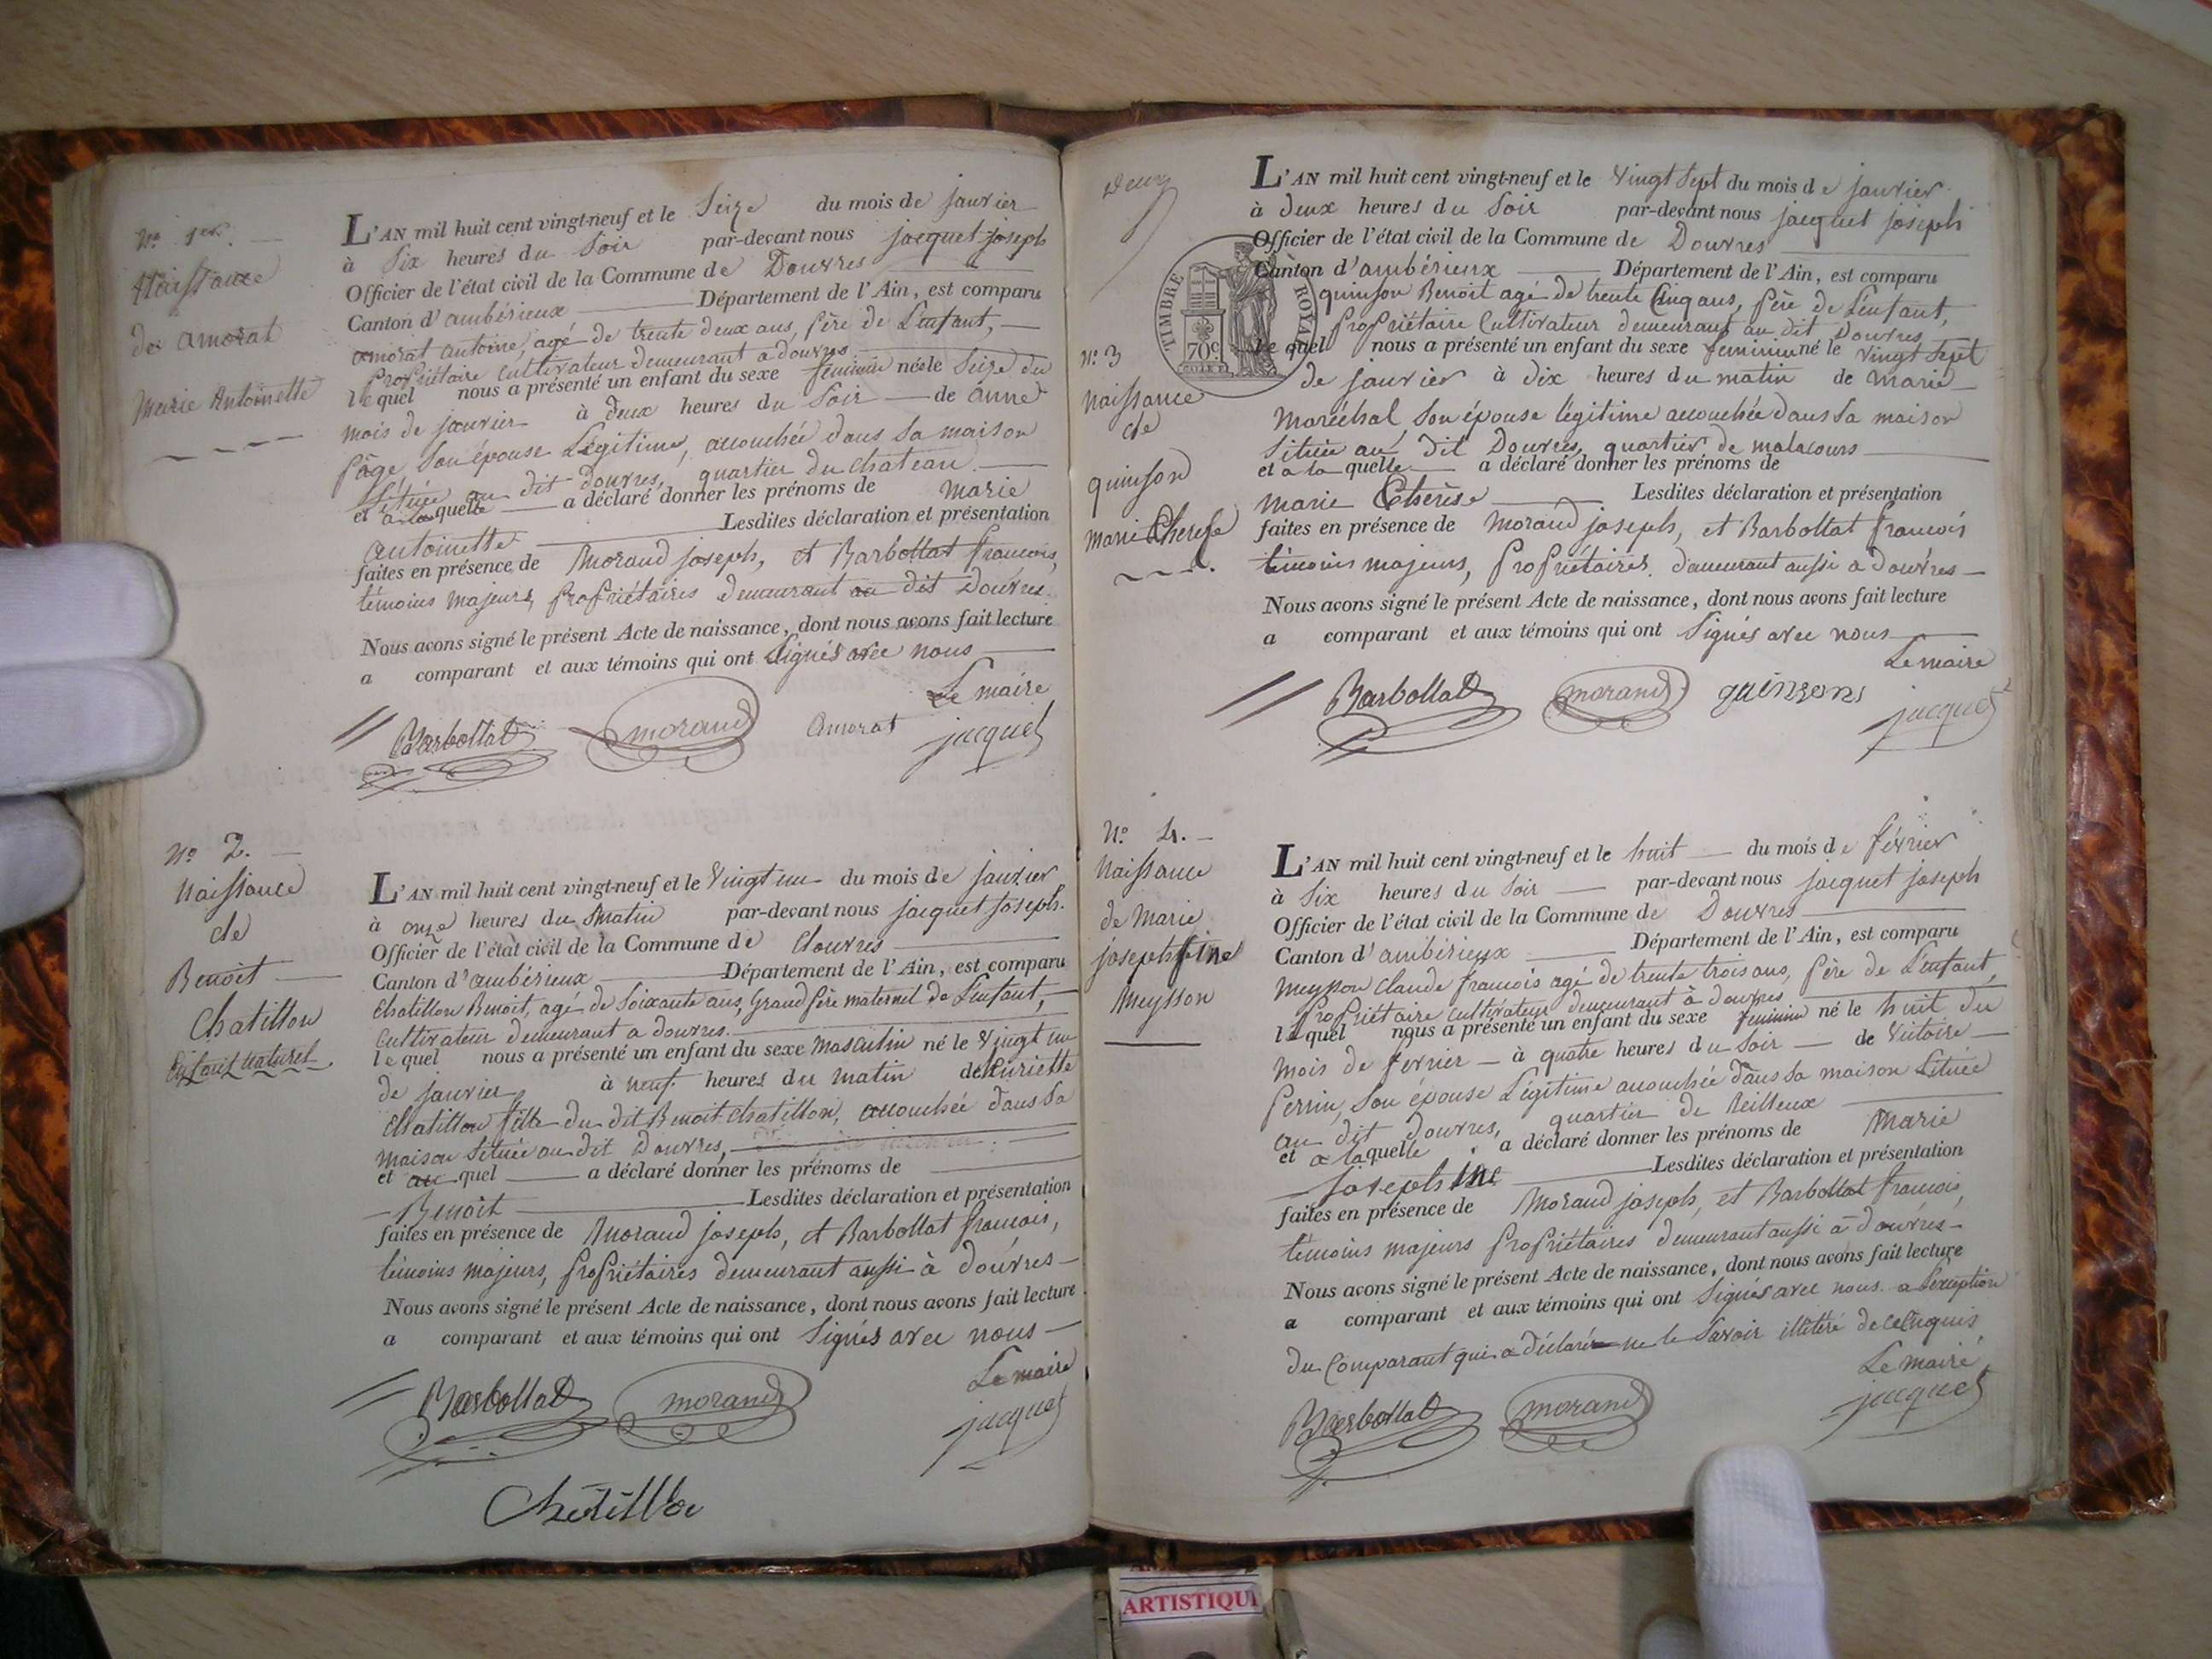 N.º 1er.
Naissance
de amorat
Marie Antoinette
L'AN mil huit cent vingt-neuf et le Seize du mois de janvier
à Six heures du Soir par-devant nous jacquet joseph
Officier de l'état civil de la Commune de Douvres
Canton d'ambérieux Département de l'Ain, est comparu
amorat antoine, agé de trente deux ans, père de L'enfant,
propriétaire cultivateur demeurant a douvres
lequel nous a présenté un enfant du sexe feminin née le Seize du
mois de janvier à deux heures du Soir de anne
páge son épouse Légitime, accouchée dans sa maison
Située au dit douvres, quartier du chateau
et a laquelle a déclaré donner les prénoms de Marie
antoinette Lesdites déclaration et présentation
faites en présence de Morand joseph, et Barbollat francois,
témoins majeurs, propriétaires demeurant au dit Douvres.
Nous avons signé le présent Acte de naissance, dont nous avons fait lecture
a comparant et aux témoins qui ont Signés avec nous
Le maire
Barbollat morand amorat jacquet
N.º 2.
Naissance
de
Benoit
Chatillon
Enfant naturel
L'AN mil huit cent vingt-neuf et le Vingt un du mois de janvier
à onze heures du Matin par-devant nous jacquet joseph.
Officier de l'état civil de la Commune de douvres
Canton d'ambérieux Département de l'Ain, est comparu
Chatillon Benoit, agé de Soixante ans, Grand père maternel de L'enfant,
Cultivateur demeurant a douvres.
lequel nous a présenté un enfant du sexe masculin né le Vingt un
de janvier à neuf heures du matin de
Chatillon fille du dit Benoit Chatillon, accouchée dans sa
maison Située au dit Douvres,
et au quel a déclaré donner les prénoms de
Benoit Lesdites déclaration et présentation
faites en présence de Morand joseph, et Barbollat françois,
témoins majeurs, propriétaires demeurant aussi à douvres
Nous avons signé le présent Acte de naissance, dont nous avons fait lecture
a comparant et aux témoins qui ont Signés avec nous
Le maire
Barbollat morand jacquet
Chatillon
deux
TIMBRE ROYAL
70c
N.º 3
Naissance
de
quinson
marie Therese
L'AN mil huit cent vingt-neuf et le Vingt Sept du mois de janvier
à deux heures du Soir par-devant nous jacquet joseph
Officier de l'état civil de la Commune de Douvres
Canton d'ambérieux Département de l'Ain, est comparu
quinson Benoit agé de trente Cinq ans, père de L'enfant,
propriétaire Cultivateur demeurant au dit Douvres
lequel nous a présenté un enfant du sexe feminin né le Vingt Sept
de janvier à dix heures du matin de Marie
Maréchal, Son épouse légitime accouchée dans sa maison
Située au dit Douvres, quartier de malacours
et a la quelle a déclaré donner les prénoms de
Marie Thérèse Lesdites déclaration et présentation
faites en présence de Morand joseph, et Barbollat francois
témoins majeurs, propriétaires demeurant aussi a douvres
Nous avons signé le présent Acte de naissance, dont nous avons fait lecture
a comparant et aux témoins qui ont Signés avec nous
Le maire
Barbollat morand quinsons jacquet
N.º 4.
Naissance
de Marie
josephine
Meysson
L'AN mil huit cent vingt-neuf et le huit du mois de février
à Six heures du Soir par-devant nous jacquet joseph
Officier de l'état civil de la Commune de Douvres
Canton d'ambérieux Département de l'Ain, est comparu
Meysson Claude francois agé de trente trois ans, père de L'enfant,
propriétaire cultivateur demeurant à douvres
lequel nous a présenté un enfant du sexe feminin né le huit du
mois de fevrier à quatre heures du Soir de Victoire
perrin, Son épouse Légitime accouchée dans sa maison Située
au dit Douvres, quartier de
et a laquelle a déclaré donner les prénoms de Marie
josephine Lesdites déclaration et présentation
faites en présence de Morand joseph, et Barbollat francois,
témoins majeurs propriétaires demeurant aussi à douvres
Nous avons signé le présent Acte de naissance, dont nous avons fait lecture
a comparant et aux témoins qui ont Signés avec nous a L'exception
du Comparant qui a déclaré ne le Savoir illitéré de ce enquis
Le maire
Barbollat morand jacquet
ARTISTIQU